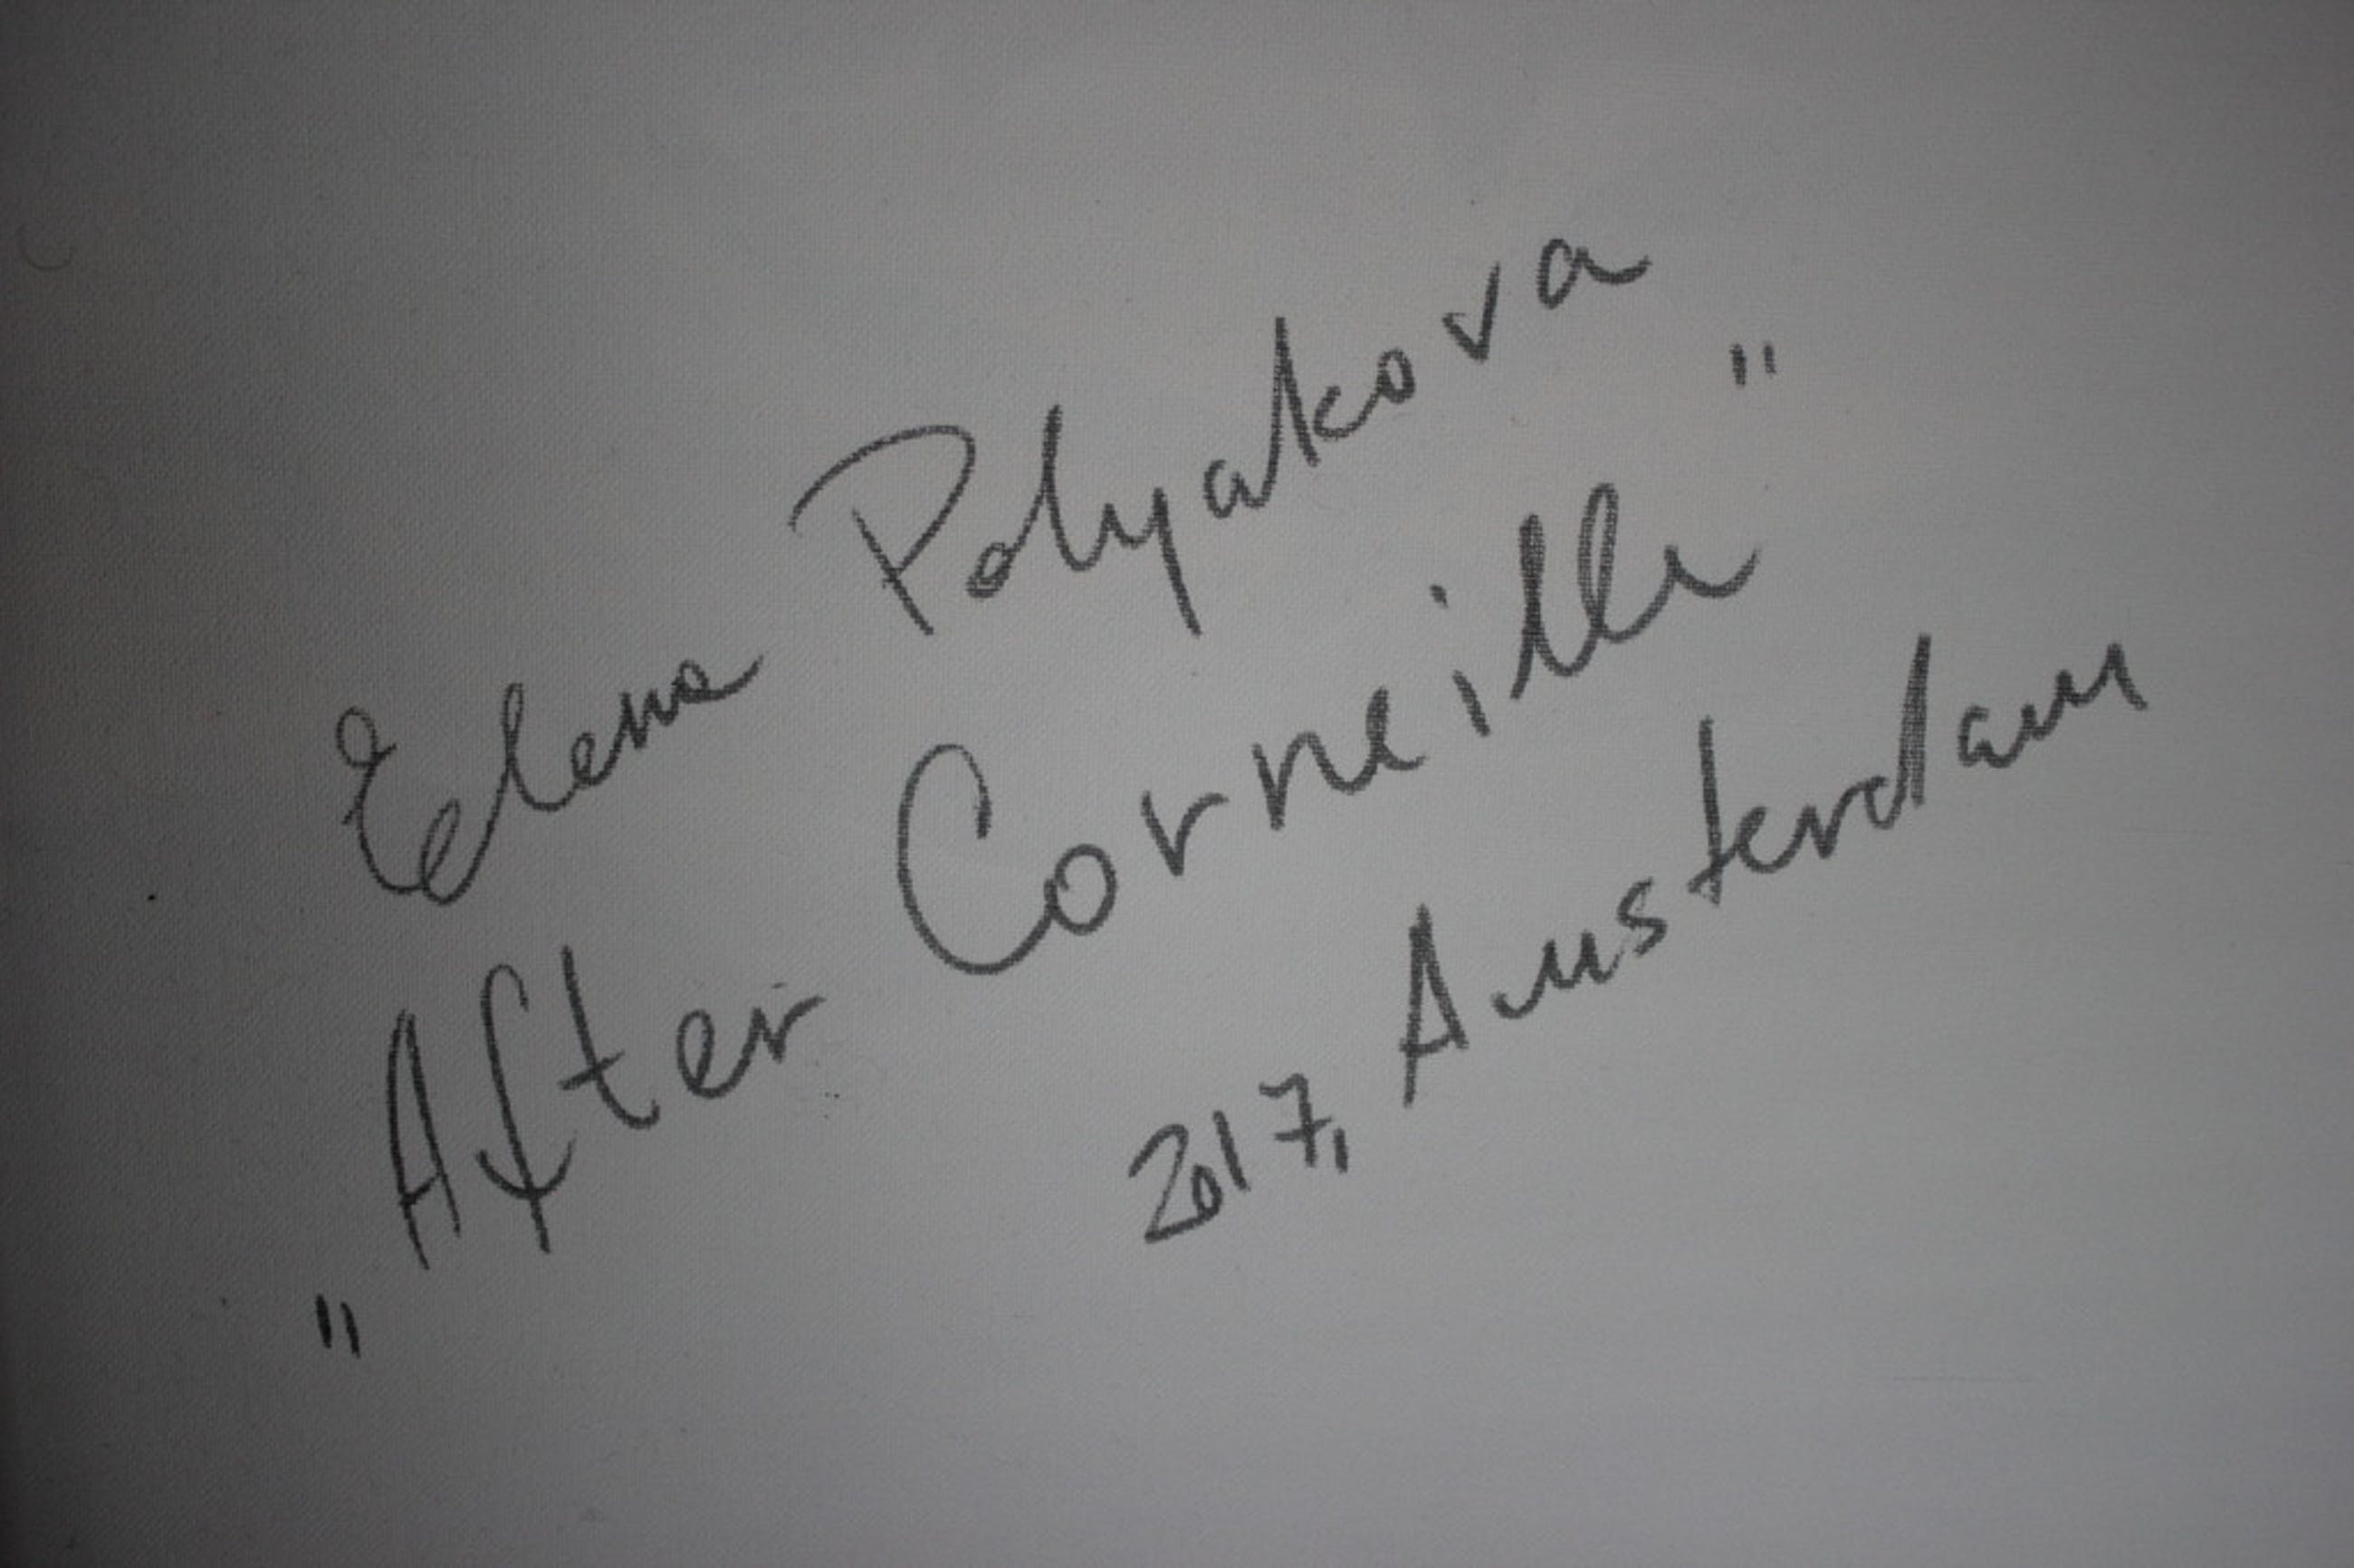 Elena Polyakova
"After Corneille"
2017, Amsterdam